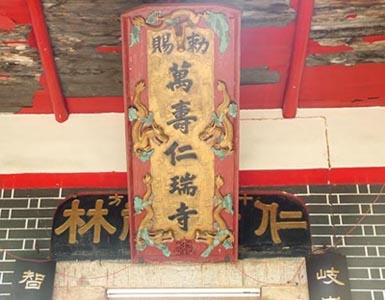 勅賜
萬壽仁瑞寺
仁
林
方
十
岐
智